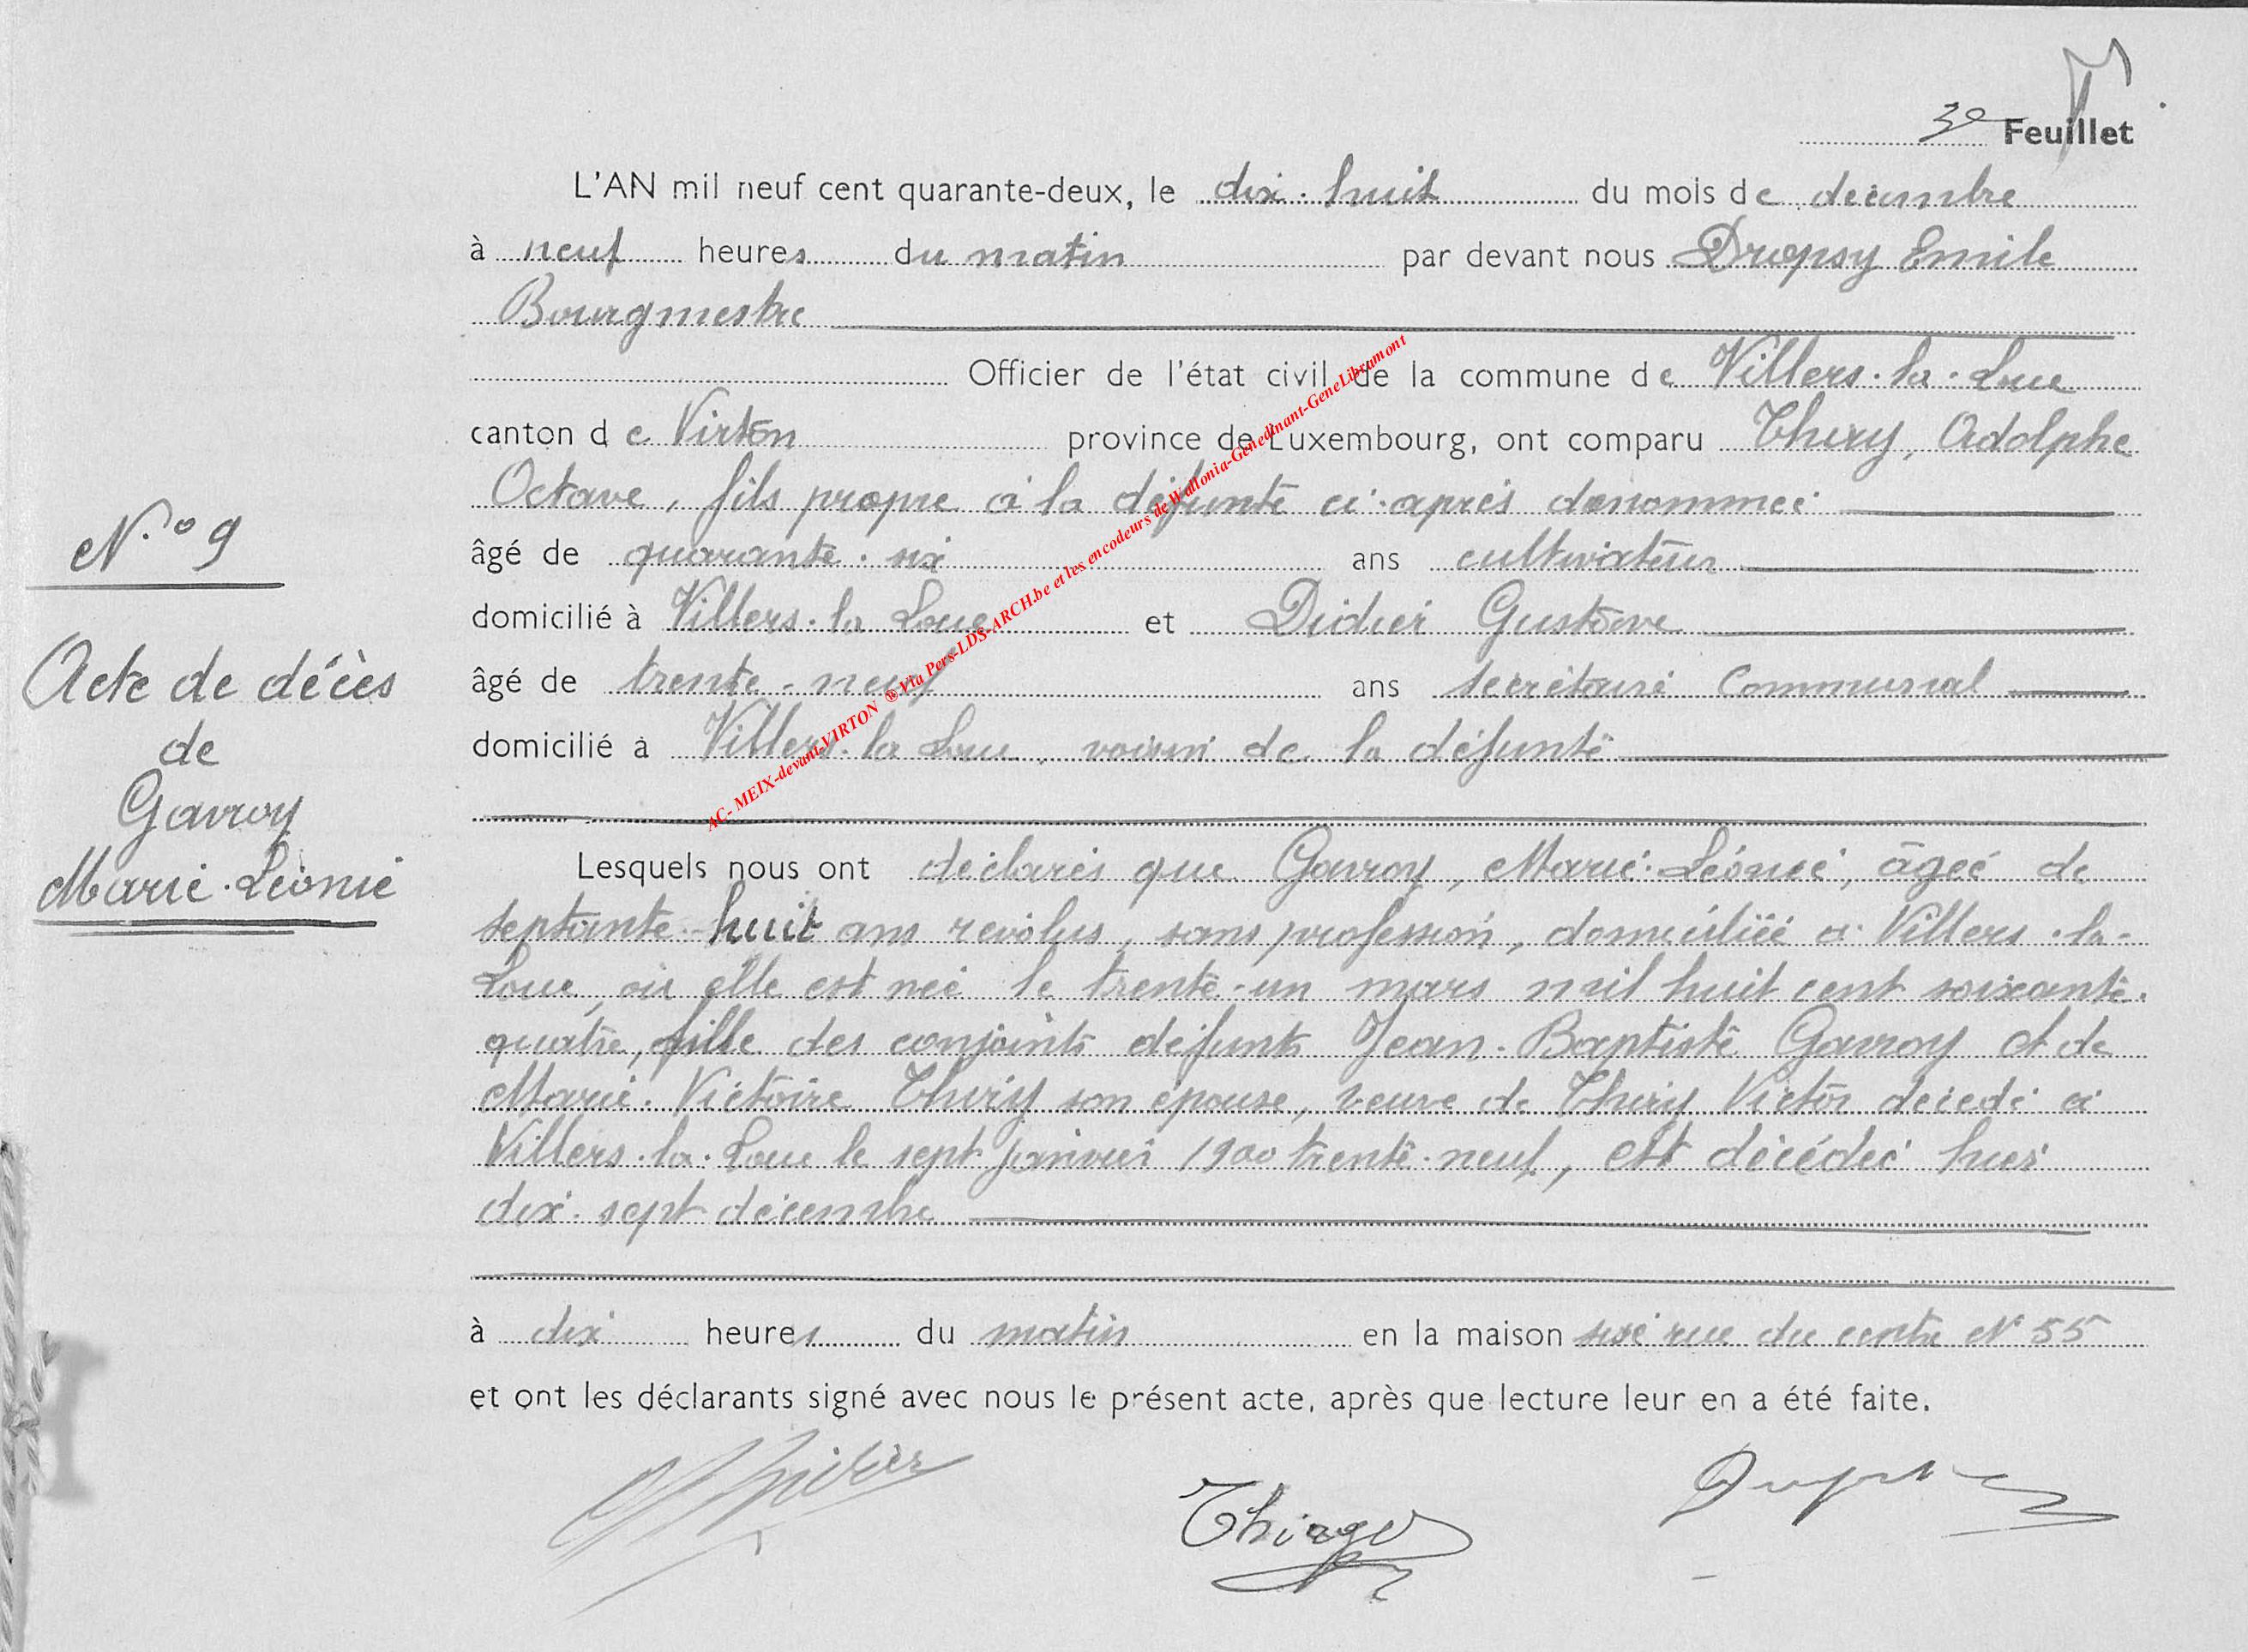 3e Feuillet
L'AN mil neuf cent quarante-deux, le dix-huit du mois de décembre
à neuf heures du matin par devant nous Dropsy Emile
Bourgmestre
Officier de l'état civil de la commune de Villers-la-Loue
canton de Virton province de Luxembourg, ont comparu Thiry, Adolphe
Octave, fils propre à la défunte ci-après dénommée
N.° 9
âgé de quarante-six ans cultivateur
domicilié à Villers-la Loue et Didier Gustave
Acte de décès
âgé de trente-neuf ans secrétaire Communal
de
domicilié à Villers-la Loue, voisin de la défunte
Gavroy
Marie-Léonie
Lesquels nous ont déclarés que Gavroy, Marie-Léonie, âgée de
septante-huit ans révolus, sans profession, domiciliée à Villers-la-
Loue, où elle est née le trente-un mars mil huit cent soixante-
quatre, fille des conjoints défunts Jean-Baptiste Gavroy et de
Marie-Victoire Thiry son épouse, veuve de Thiry Victor décédé à
Villers-la-Loue le sept janvier 1900 trente-neuf, est décédée hier
dix-sept décembre
à dix heures du matin en la maison sise rue du centre N° 55
et ont les déclarants signé avec nous le présent acte, après que lecture leur en a été faite.
AC- MEIX-devant-VIRTON @ via Pers-LDS-ARCH.be et les encodeurs de Wallonia-Genedinant-GeneLibramont